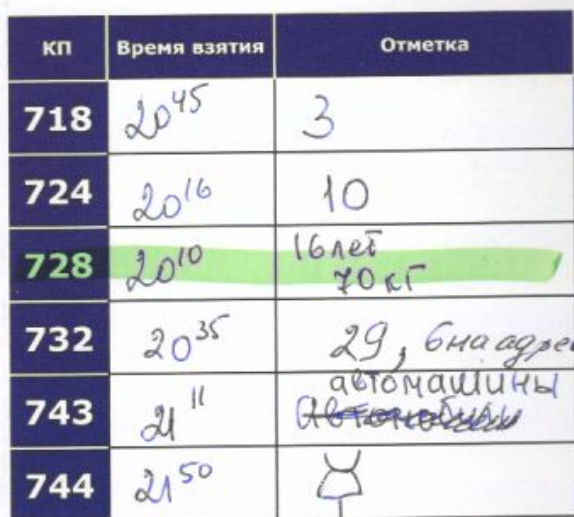 КП Время взятия Отметка
718 20⁴⁵ 3
724 20¹⁶ 10
728 20¹⁰ 16 лет
70 кг
732 20³⁵ 29, 6 на адре
743 21¹¹ автомашины
744 21⁵⁰